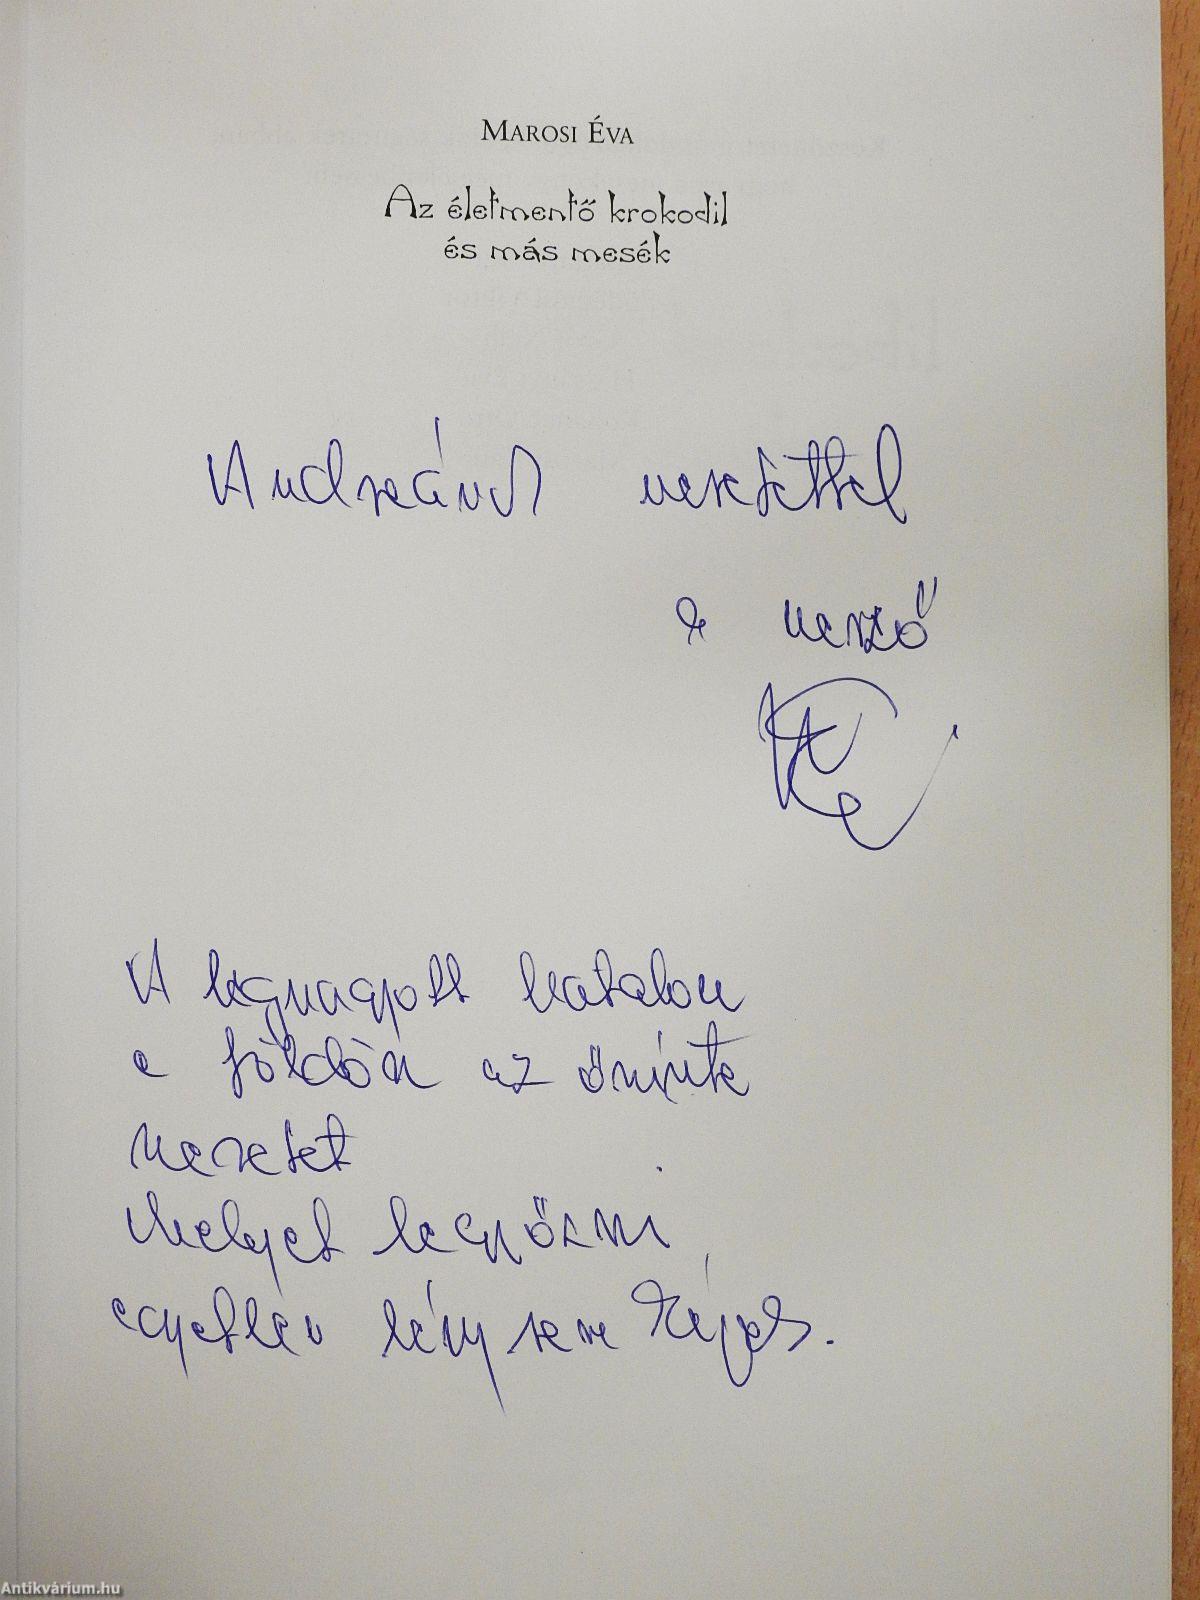 MAROSI ÉVA
Az életmentő krokodil
és más mesék
Andreának szeretettel
a szerző
A legnagyobb hatalom
a földön az őszinte
szeretet
melyet legyőzni
egyetlen lény sem képes.
Antikvárium.hu